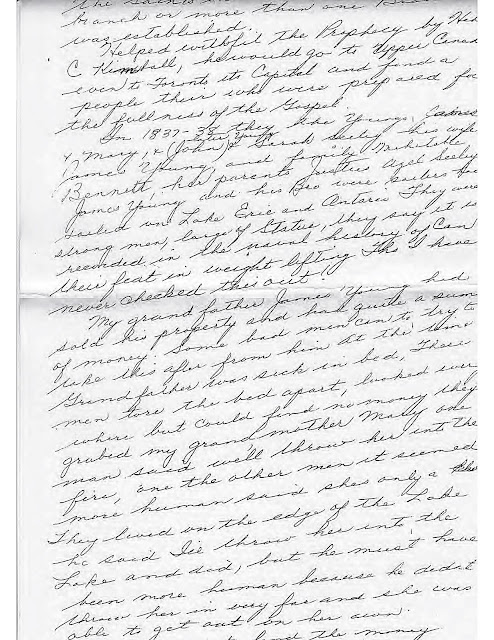 the Saints
branch or more than one
was established.
Helped withfil the Prophecy by
C Kimball, he would go to Upper Canada
even to Toronto its Capital and find a
people their who were prepared for
the fullness of the Gospel.
In 1837-38 they the Youngs, James
& Mary, & (John) & Sarah Seeley his wife
(James Young) and family Mehitable
Bennett, her parents Justus Azel Seeley
James Young and his Bro were sailors
sailed on Lake Erie and Antario They were
strong men, large of Statue, they say it is
recorded in the naval history of Can
their feat in weight lifting Tho I have
never checked this out.
My grand father James Young had
sold his property and had quite a sum
of money. Some bad men cam to try to
take this after from him At the time
Grand father was sick in bed, Those
men tore the bed apart, looked every
where but could find no money they
grabed my grand mother Mary one
man said we'll throw her into the
fire, one the other men it seemed
more human said shes only a
They lived on the edge of the Lake
he said I'le throw her into the
Lake and did, but he must have
been more human because he didnt
throw her in very far and she was
able to get out on her own.
find the money